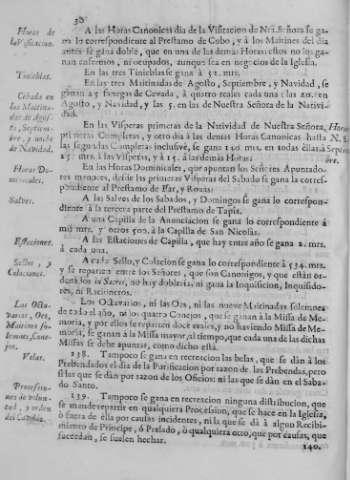 30
Horas de la Visitacion.
A las Horas Canonicas dia de la Visitacion de Nra. Señora se gana lo correspondiente al Prestamo de Cobo, y à los Maitines del dia antes se gana doble, que en una de las demàs Horas: estos no los ganan enfermos, ni ocupados, aunque sea en negocios de la Iglesia.
Tinieblas.
En las tres Tinieblas se gana à 52. mrs.
Cebada en las Maitinadas de Agosto, Septiembre, y noche de Navidad.
En las tres Maitinadas de Agosto, Septiembre, y Navidad, se ganan 25 fanegas de Cevada, à quatro reales cada una: las 20. en Agosto, y Navidad, y las 5. en las de Nuestra Señora de la Natividad.
En las Visperas primeras de la Natividad de Nuestra Señora, primeras Completas, y otro dia à las demàs Horas Canonicas hasta las segundas Completas inclusive, se gana mrs. en todas
mrs. à las Visperas, y à 15. à las demàs Horas.
Horas Dominicales.
En las Horas Dominicales, que apuntan los Señores Apuntadores menores, desde las primeras Visperas del Sabado se gana la correspondiente al Prestamo de
Salves.
A las Salves de los Sabados, y Domingos se gana lo correspondiente à la tercera parte del Prestamo de Tapia.
A una Capilla de la Anunciacion se gana lo correspondiente à mil mrs. y otros 500. à la Capilla de San Nicolàs.
Estaciones.
A las Estaciones de Capilla, que hay entre año se gana 2. mrs. à cada una.
Sellos, y Colaciones.
A cada Sello, y Colacion se gana lo correspondiente à 534. mrs. y se reparten entre los Señores, que son Canonigos, y que estàn ordenados in Sacris, no hay dobleria, ni gana la Inquisicion, Inquisidores, ni Racioneros.
Las Octavarios, Oes, Maitines solemnes, Conejos, se
Los Octavarios, ni las Oes, ni las nueve Maitinadas solemnes de todo el año, ni los quatro Conejos, que se ganan à la Missa de Memoria, y por ellos se reparten doce reales, y no haviendo Missa de Memoria, se ganan à la Missa mayor, al tiempo, que cada una de las dichas Missas se debe apuntar, como dicho està.
Velas.
238. Tampoco se gana en recreacion las belas, que se dàn à los Prebendados el dia de la Purificacion por razon de las Prebendas, pero sì las que se dàn por razon de los Oficios: ni las que se dàn en el Sabado Santo.
Procesiones de voluntad, y orden del Cabildo.
239. Tampoco se gana en recreacion ninguna distribucion, que se mande repartir en qualquiera Procesion, que se hace en la Iglesia, ò fuera de ella por causas incidentes, ni la que se dà à algun Recibimiento de Principe, ò Prelado, ò qualquiera otro, que por causas, que sucedan, se suelen hechar.
240.